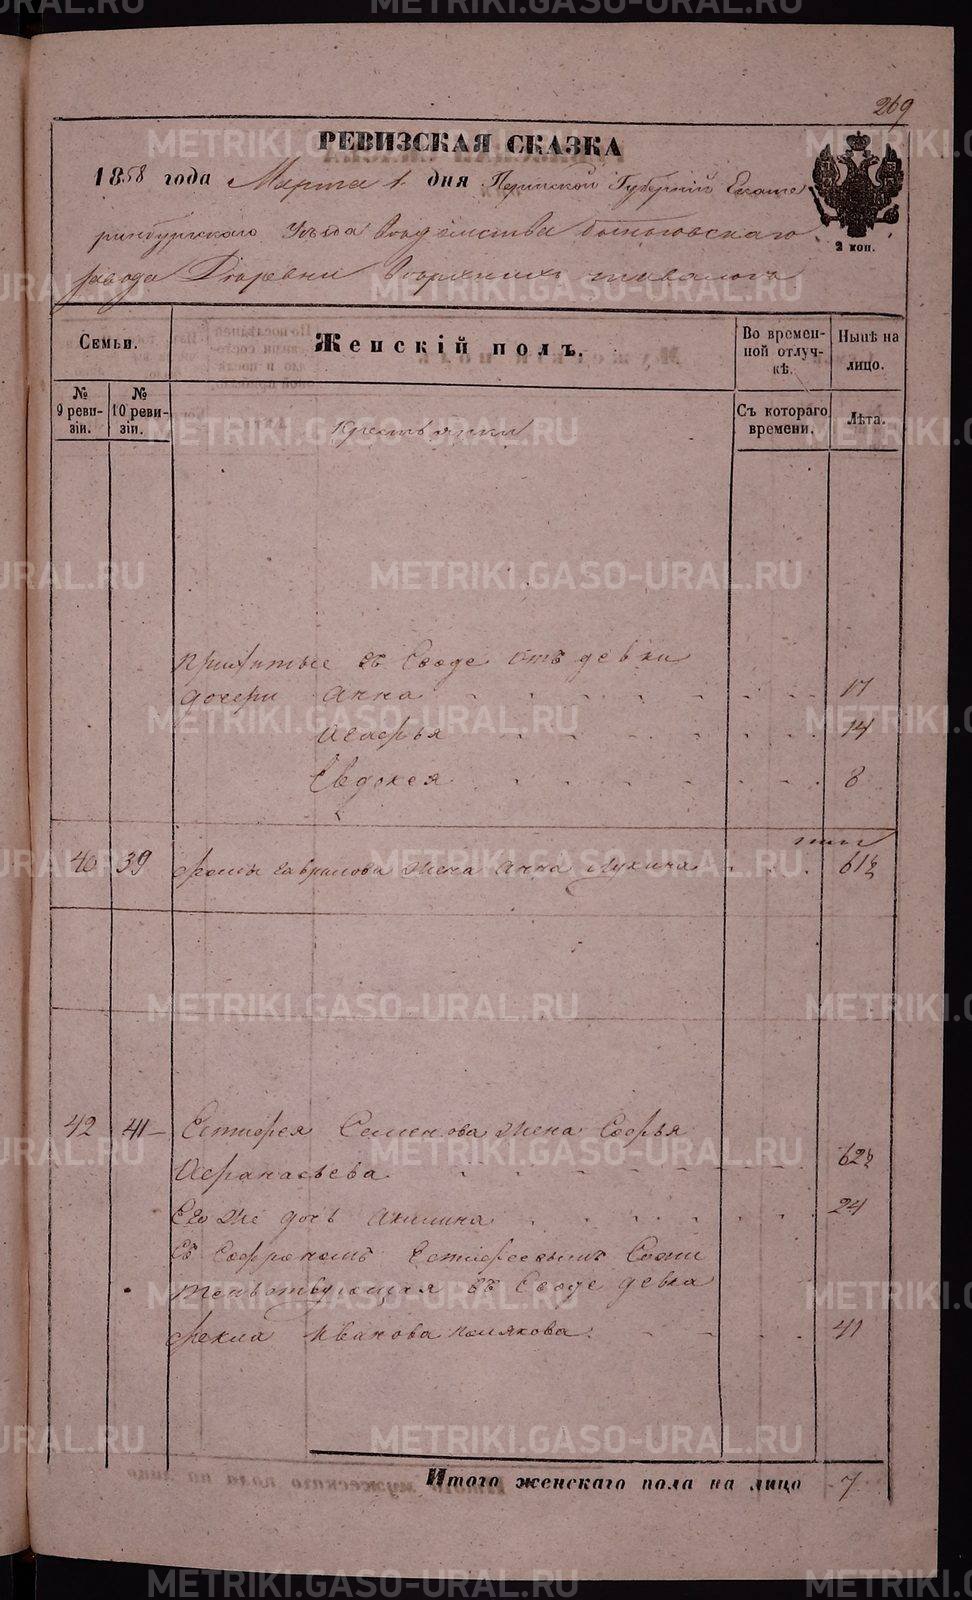 269
РЕВИЗСКАЯ СКАЗКА
1858 года Марта 1 дня Пермской Губерніи Екате
ринбургскаго Уѣзда Вѣдомства Быньговскаго
завода Деревни Верхнихъ тавологъ
2 коп.
Семьи.
Женскій полъ.
Во времен-
ной отлуч-
кѣ.
Нынѣ на
лицо.
№
9 реви-
зіи.
№
10 реви-
зіи.
Съ котораго
времени.
Лѣта.
Крестьянки
прижитые въ Сводѣ Отъ девки
дочери Анна 17
Агафья 14
Евдокея 8
40 39 Фомы Гаврилова жена Анна Лукина 61½
42 41 Естифея Семенова жена Софья
Афанасьева 62½
Его же дочь Акилина 24
Съ Софрономъ Естифеевымъ Сожи
тельствующая въ Сводѣ девка
Фекла Иванова Полякова 41
Итого женскаго пола на лицо 7
METRIKI.GASO-URAL.RU